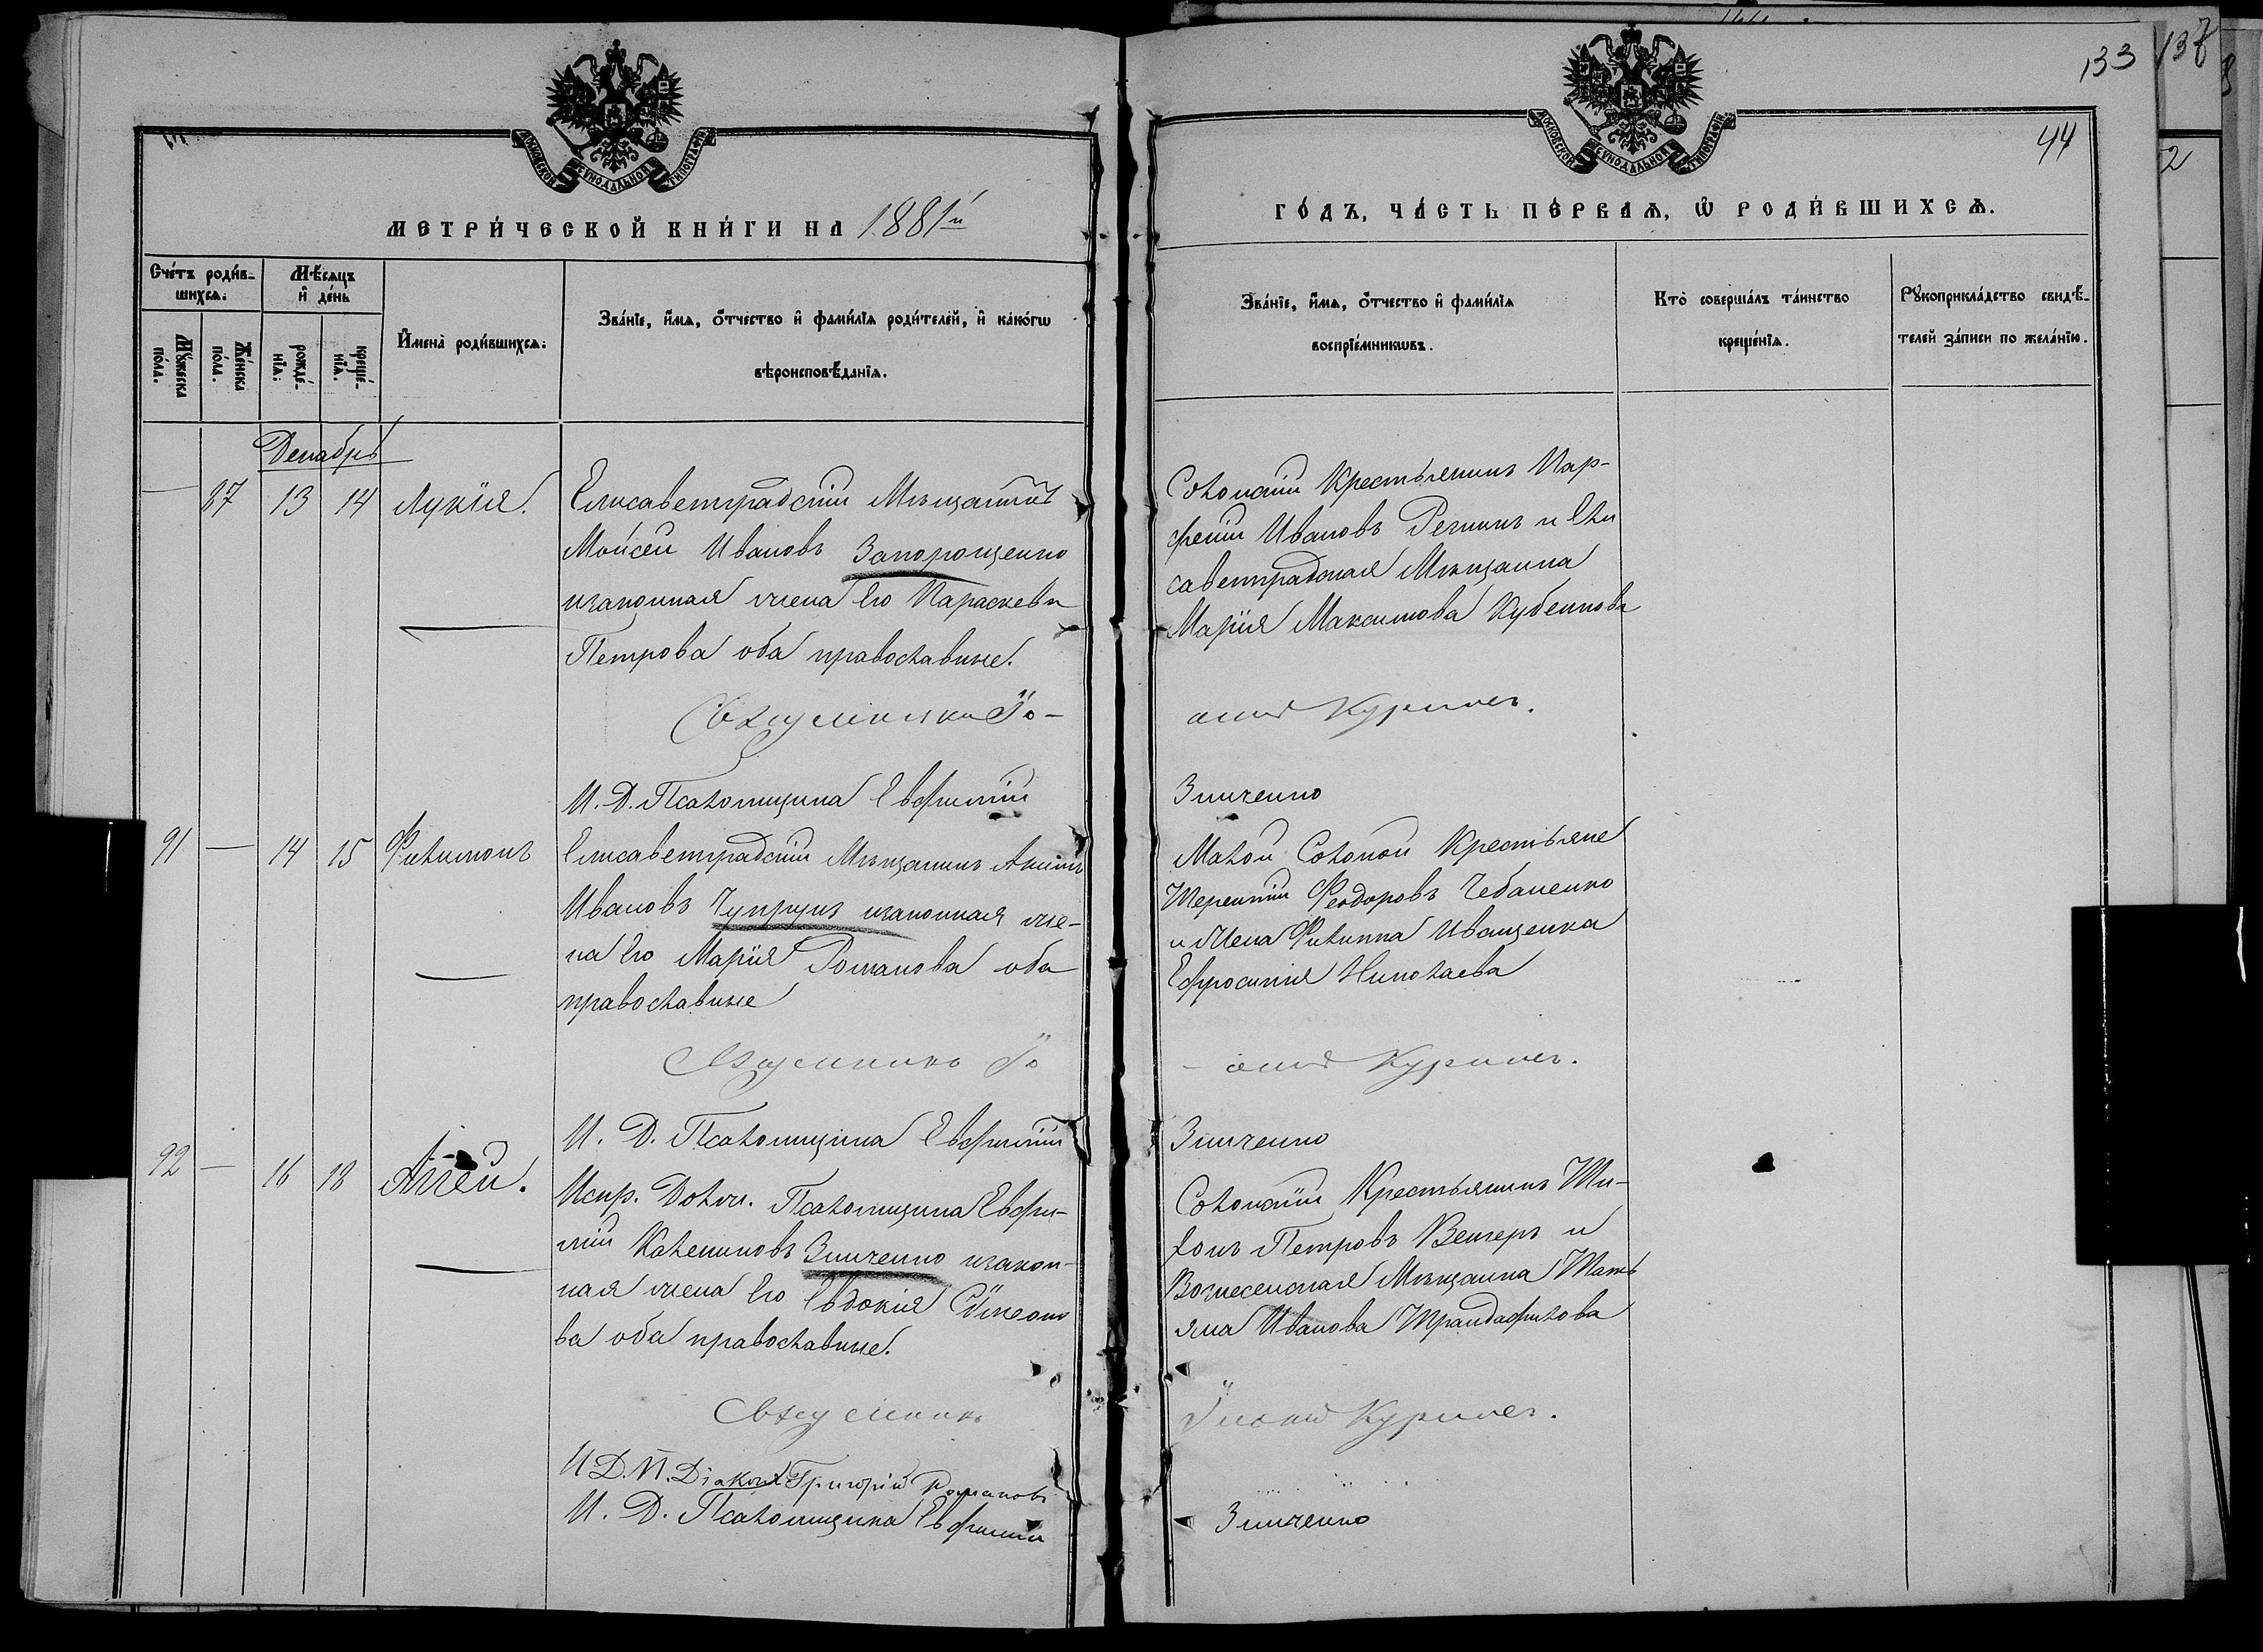 133
137
44
2
МОСКОВСКОЙ СУНОДАЛЬНОЙ ТИПОГРАФІИ
МОСКОВСКОЙ СУНОДАЛЬНОЙ ТИПОГРАФІИ
МЕТРИ́ЧЕСКОЙ КНИ́ГИ НА 1881й
ГО́ДЪ, ЧА́СТЬ ПЕ́РВАѦ, Ѡ РОДИ́ВШИХСѦ.
Сче́тъ роди́в-
шихсѧ:
Мѣ́сѧцъ
и де́нь
Мꙋ́жеска
по́ла.
Же́нска
по́ла.
рожде́-
нїѧ:
креще́-
нїѧ.
И҆мена̀ роди́вшихсѧ:
Зва́нїе, и҆́мѧ, ѻ҆́тчество и҆ фами́лїѧ роди́телей, и҆ како́гѡ
вѣроисповѣ́данїѧ.
Зва́нїе, и҆́мѧ, ѻ҆́тчество и҆ фами́лїѧ
воспрїе́мникѡвъ.
Кто̀ соверша́лъ та́инство
креще́нїѧ.
Рꙋкоприкла́дство свидѣ́-
телей за́писи по жела́нїю.
Декабрь
— 87 13 14 Лукія.
Елисаветградскій Мѣщанинъ
Моисей Ивановъ Запорощенко
изаконная жена Его Параскева
Петрова оба православные.
Сокольскій Крестьянинъ Пар-
феній Ивановъ Репинъ и Ели
саветградская Мѣщанка
Марія Максимова
Священникъ Іо-
аннъ Куриловъ.
И. Д. Псаломщика Евфимій
Зинченко
91 — 14 15 Филимонъ
Елисаветградскій Мѣщанинъ Акимъ
Ивановъ Чупрунъ изаконная же-
на Его Марія Романова оба
православные
Крестьяне
Терентій Феодоровъ Чебаненко
и жена Филиппа Иващенка
Ефросинія Николаева
Священникъ Іо
- аннъ Куриловъ.
И. Д. Псаломщика Евфимій
Зинченко
92 — 16 18 Аггей.
Испр. Долж. Псаломщика Евфи-
мій Калениковъ Зинченко изакон-
ная жена Его Евдокія Сѵмеоно
ва оба православные.
Сокольскій Крестьянинъ Ти-
хонъ Петровъ Венгеръ и
Вознесенская Мѣщанка Тать
яна Иванова Трандафилова
Священникъ
Іоаннъ Куриловъ.
И Д. П. Діаконъ Григорій Романовъ
И. Д. Псаломщика Евфимій
Зинченко